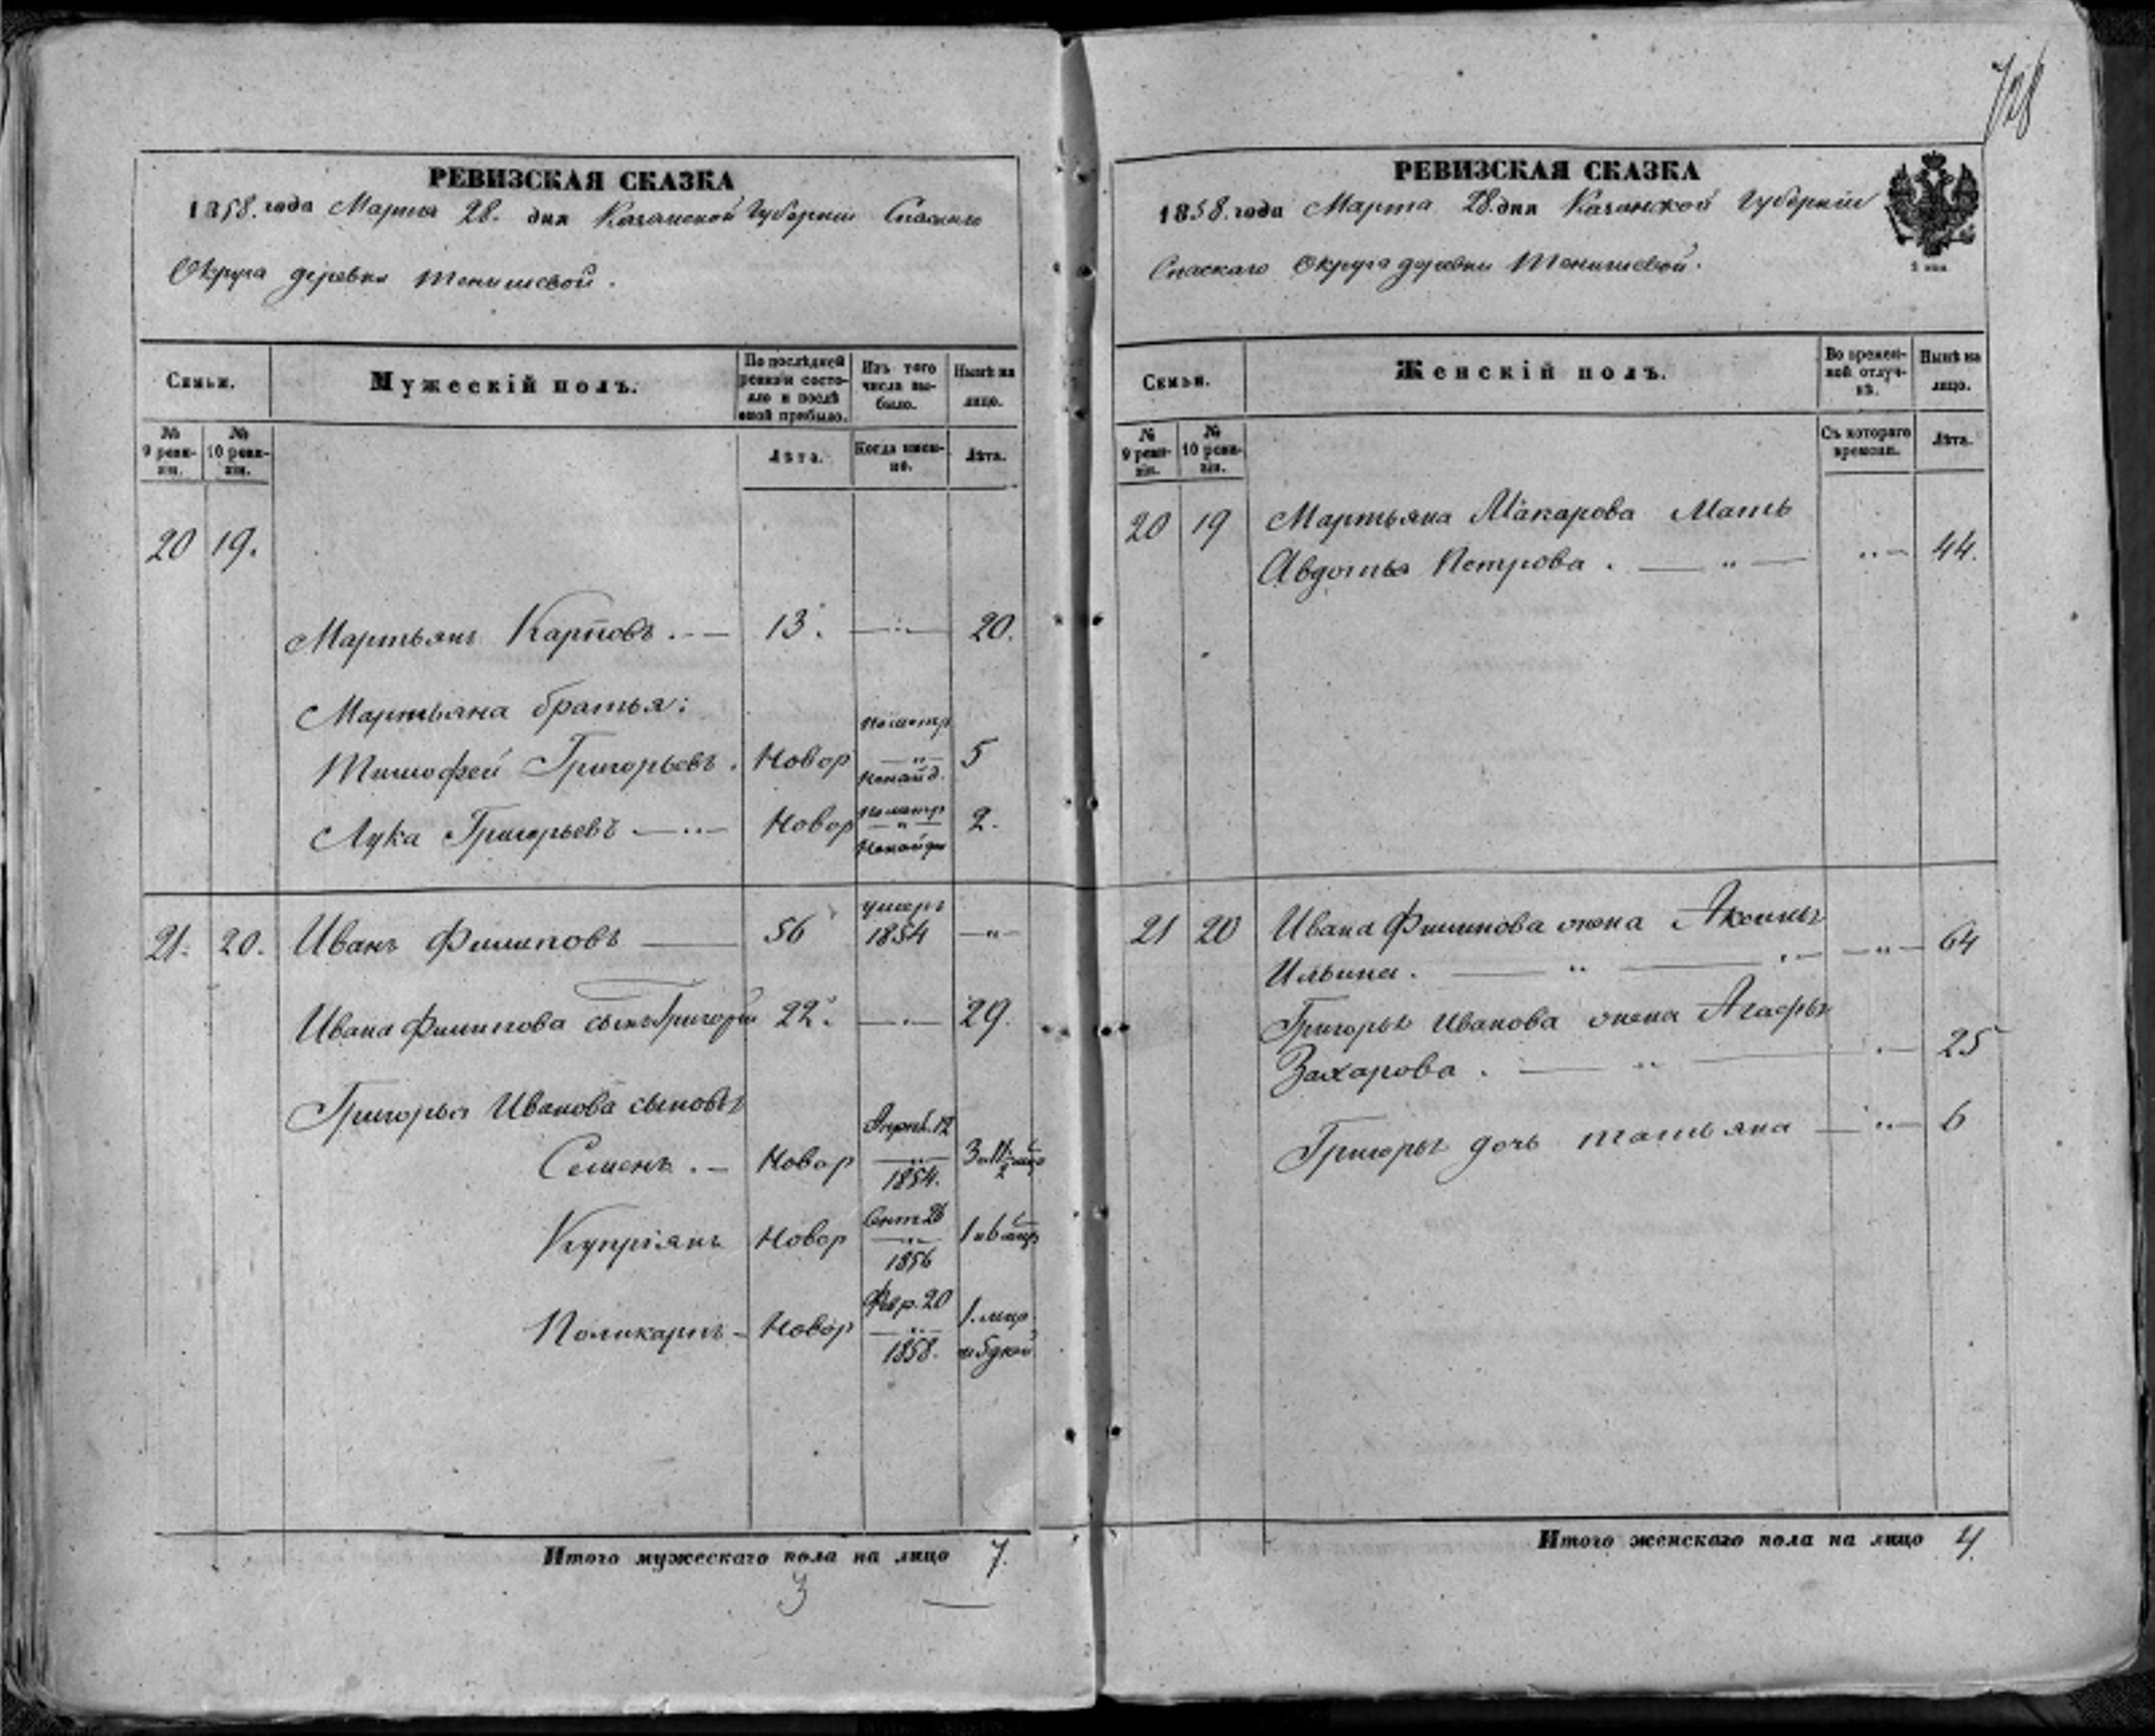 РЕВИЗСКАЯ СКАЗКА
1858. года Марта 28. дня Казанской Губерніи Спаскаго
Округа деревни Тенишевой.
Семьи.
Мужескій полъ.
По послѣдней ревизіи состояло и послѣ оной прибыло.
Изъ того числа выбыло.
Нынѣ на лицо.
№ 9 ревизіи.
№ 10 ревизіи.
Лѣта.
Когда именно.
Лѣта.
20 19.
Мартьянъ Карповъ. 13. 20.
Мартьяна братья:
Тимофей Григорьевъ. Новор 5
Лука Григорьевъ Новор 2.
21. 20. Иванъ Филиповъ 56 умеръ 1854
Ивана Филипова сынъ Григорій 22. 29.
Григорья Иванова сыновья
Семенъ. Новор Апрѣл. 12 1854.
Купріянъ Новор Сент 26 1856
Поликарпъ Новор Февр. 20 1858.
Итого мужескаго пола на лицо 7.
3
728
РЕВИЗСКАЯ СКАЗКА
1858. года Марта 28. дня Казанской Губерніи
Спаскаго Округа деревни Тенишевой.
Семьи.
Женскій полъ.
Во временной отлучкѣ.
Нынѣ на лицо.
№ 9 ревизіи.
№ 10 ревизіи.
Съ котораго времени.
Лѣта.
20 19 Мартьяна Макарова Мать
Авдотья Петрова. 44.
21 20 Ивана Филипова жена Аксинья
Ильина. 64
Григорья Иванова жена Агафья
Захарова. 25
Григорья дочь Татьяна 6
Итого женскаго пола на лицо 4.